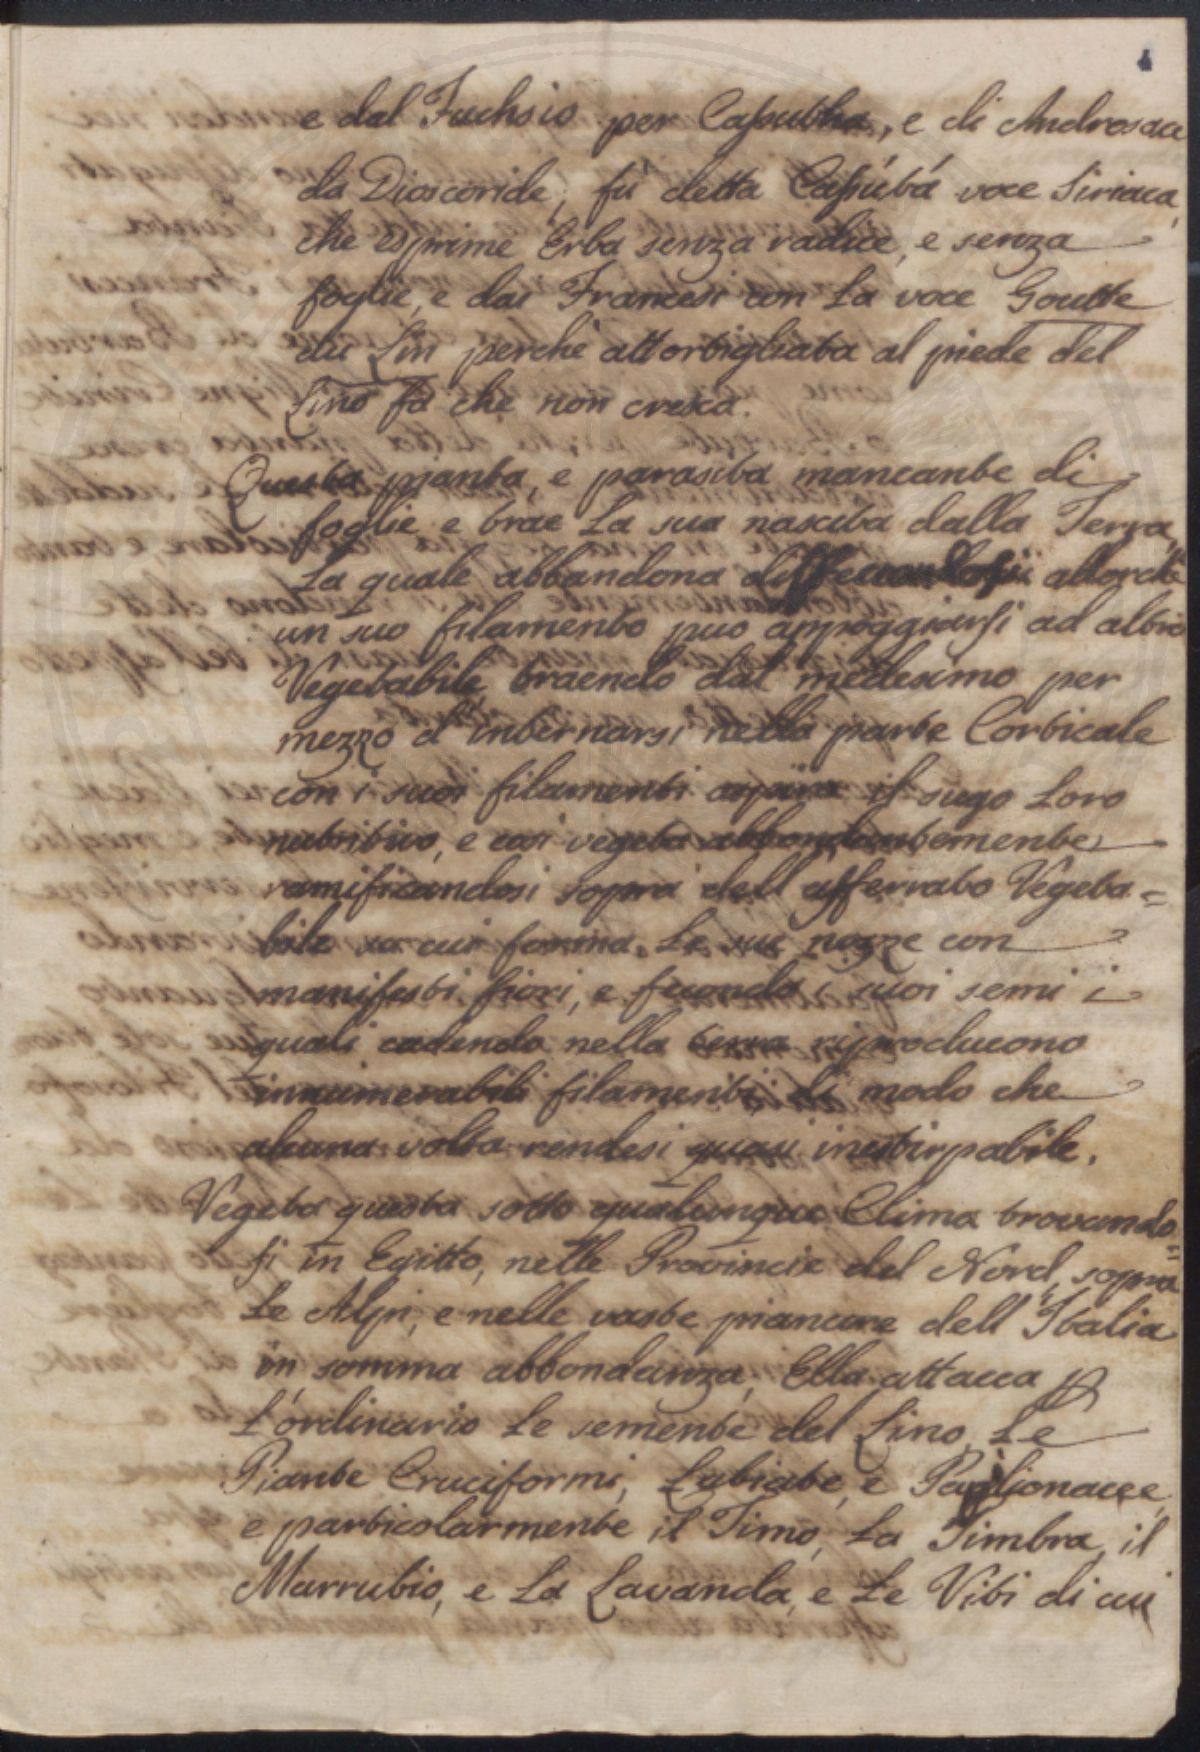 e dal Fuchsio per Cassutha, e di Androsace
da Dioscoride, fù detta Cassútá voce Siriaca,
che esprime Erba senza radice, e senza
foglie, e dai Francesi con La voce Goutte
du Lin perchè attortigliata al piede del
Lino fà che non cresca.
Questa pianta, e parasita mancante di
foglie e trae La sua nascita dalla Terra,
La quale abbandona allorchè
un suo filamento può appoggiarsi ad altro
Vegetabile, traendo dal medesimo per
mezzo d'internarsi nella parte Corticale
con i suoi filamenti il sugo Loro
nutritivo, e così vegeta abbondantemente
ramificandosi sopra dell'afferrato Vegeta=
bile su cui forma Le sue nozze con
manifesti fiori, e feconda i suoi semi i
quali cadendo nella terra riproducono
innumerabili filamenti, di modo che
alcuna volta rendesi quasi inestirpabile.
Vegeta questa sotto qualunque Clima trovando=
si in Egitto, nelle Provincie del Nord, sopra
Le Alpi, e nelle vaste pianure dell'Italia
in somma abbondanza, Ella attacca p
L'ordinario Le semente del Lino, Le
Piante Cruciformi, Labiate, e Papilionacee,
e particolarmente il Timo, La Timbra, il
Marrubio, e La Lavanda, e Le Viti di cui